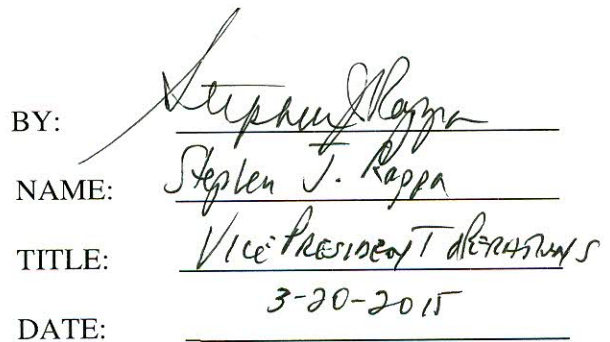 BY: Stephen J Rappa
NAME: Stephen J. Rappa
TITLE: Vice President Operations
DATE: 3-20-2015